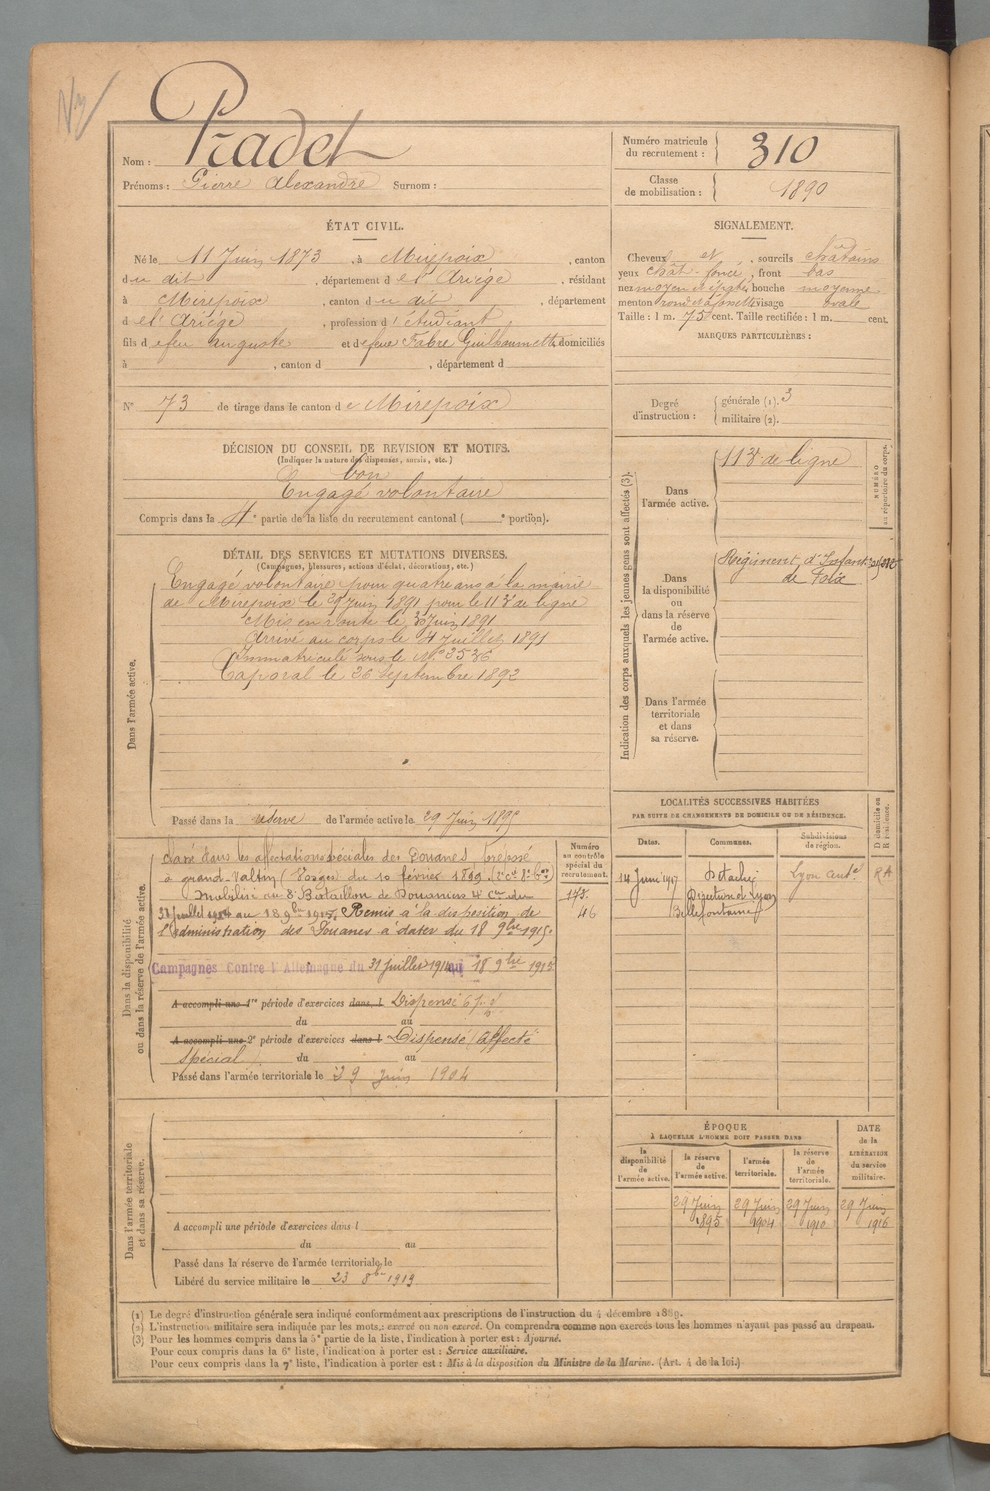 Nz
Nom : Pradet
Prénoms : Pierre Alexandre Surnom :
Numéro matricule du recrutement : 310
Classe de mobilisation : 1890
ÉTAT CIVIL.
Né le 11 Juin 1873, à Mirepoix, canton
du dit, département de l'Ariége, résidant
à Mirepoix, canton du dit, département
de l'Ariége, profession d'étudiant
fils de feu auguste et de feue Fabre Guilhaumette domiciliés
à , canton d , département d
N° 73 de tirage dans le canton de Mirepoix
SIGNALEMENT.
Cheveux et , sourcils châtains
yeux chât. foncé, front bas
nez moyen et épaté, bouche moyenne
menton rond et à fossette visage ovale
Taille : 1 m. 75 cent. Taille rectifiée : 1 m. cent.
MARQUES PARTICULIÈRES :
Degré d'instruction : générale (1). 3
militaire (2).
DÉCISION DU CONSEIL DE REVISION ET MOTIFS.
(Indiquer la nature des dispenses, sursis, etc.)
bon
Engagé volontaire
Compris dans la 4e partie de la liste du recrutement cantonal ( e portion).
DÉTAIL DES SERVICES ET MUTATIONS DIVERSES.
(Campagnes, blessures, actions d'éclat, décorations, etc.)
Dans l'armée active.
Engagé volontaire pour quatre ans à la mairie
de Mirepoix le 29 Juin 1891 pour le 113e de ligne
Mis en route le 30 Juin 1891
Arrivé au corps le 4 Juillet 1891
Immatriculé sous le N° 3536
Caporal le 26 Septembre 1892
Passé dans la réserve de l'armée active le 29 Juin 1895
Indication des corps auxquels les jeunes gens sont affectés (3).
NUMÉRO au répertoire du corps.
Dans l'armée active.
113e de ligne
Dans la disponibilité ou dans la réserve de l'armée active.
Régiment d'Infant
de Foix
Dans l'armée territoriale et dans sa réserve.
Dans la disponibilité ou dans la réserve de l'armée active.
Classé dans les affectations spéciales des Douanes, préposé
à grand-Valtin, Vosges du 10 février 1899
Mobilisé au 8e Bataillon de Douaniers 4e Cie du
31 juillet 1914 au 18 9bre 1915. Remis à la disposition de
l'administration des Douanes à dater du 18 9bre 1915.
Campagnes Contre l'Allemagne du 31 Juillet 1914 au 18 9bre 1915
A accompli une 1re période d'exercices dans l Dispensé
du au
A accompli une 2e période d'exercices dans l Dispensé (affecté
spécial) du au
Passé dans l'armée territoriale le 29 Juin 1904
Numéro au contrôle spécial du recrutement.
46
LOCALITÉS SUCCESSIVES HABITÉES
PAR SUITE DE CHANGEMENTS DE DOMICILE OU DE RÉSIDENCE.
Dates. Communes. Subdivisions de région. D domicile ou R résidence.
14 Juin 1917 Détaché Lyon
Direction de Lyon
Bellefontaine
Dans l'armée territoriale et dans sa réserve.
A accompli une période d'exercices dans l
du au
Passé dans la réserve de l'armée territoriale le
Libéré du service militaire le 23 8bre 1919
ÉPOQUE
À LAQUELLE L'HOMME DOIT PASSER DANS
la disponibilité de l'armée active.
la réserve de l'armée active.
l'armée territoriale.
la réserve de l'armée territoriale.
DATE de la LIBÉRATION du service militaire.
29 Juin 1895 29 Juin 1904 29 Juin 1910 29 Juin 1916
(1) Le degré d'instruction générale sera indiqué conformément aux prescriptions de l'instruction du 4 décembre 1889.
(2) L'instruction militaire sera indiquée par les mots : exercé ou non exercé. On comprendra comme non exercés tous les hommes n'ayant pas passé au drapeau.
(3) Pour les hommes compris dans la 5e partie de la liste, l'indication à porter est : Ajourné.
Pour ceux compris dans la 6e liste, l'indication à porter est : Service auxiliaire.
Pour ceux compris dans la 7e liste, l'indication à porter est : Mis à la disposition du Ministre de la Marine. (Art. 4 de la loi.)